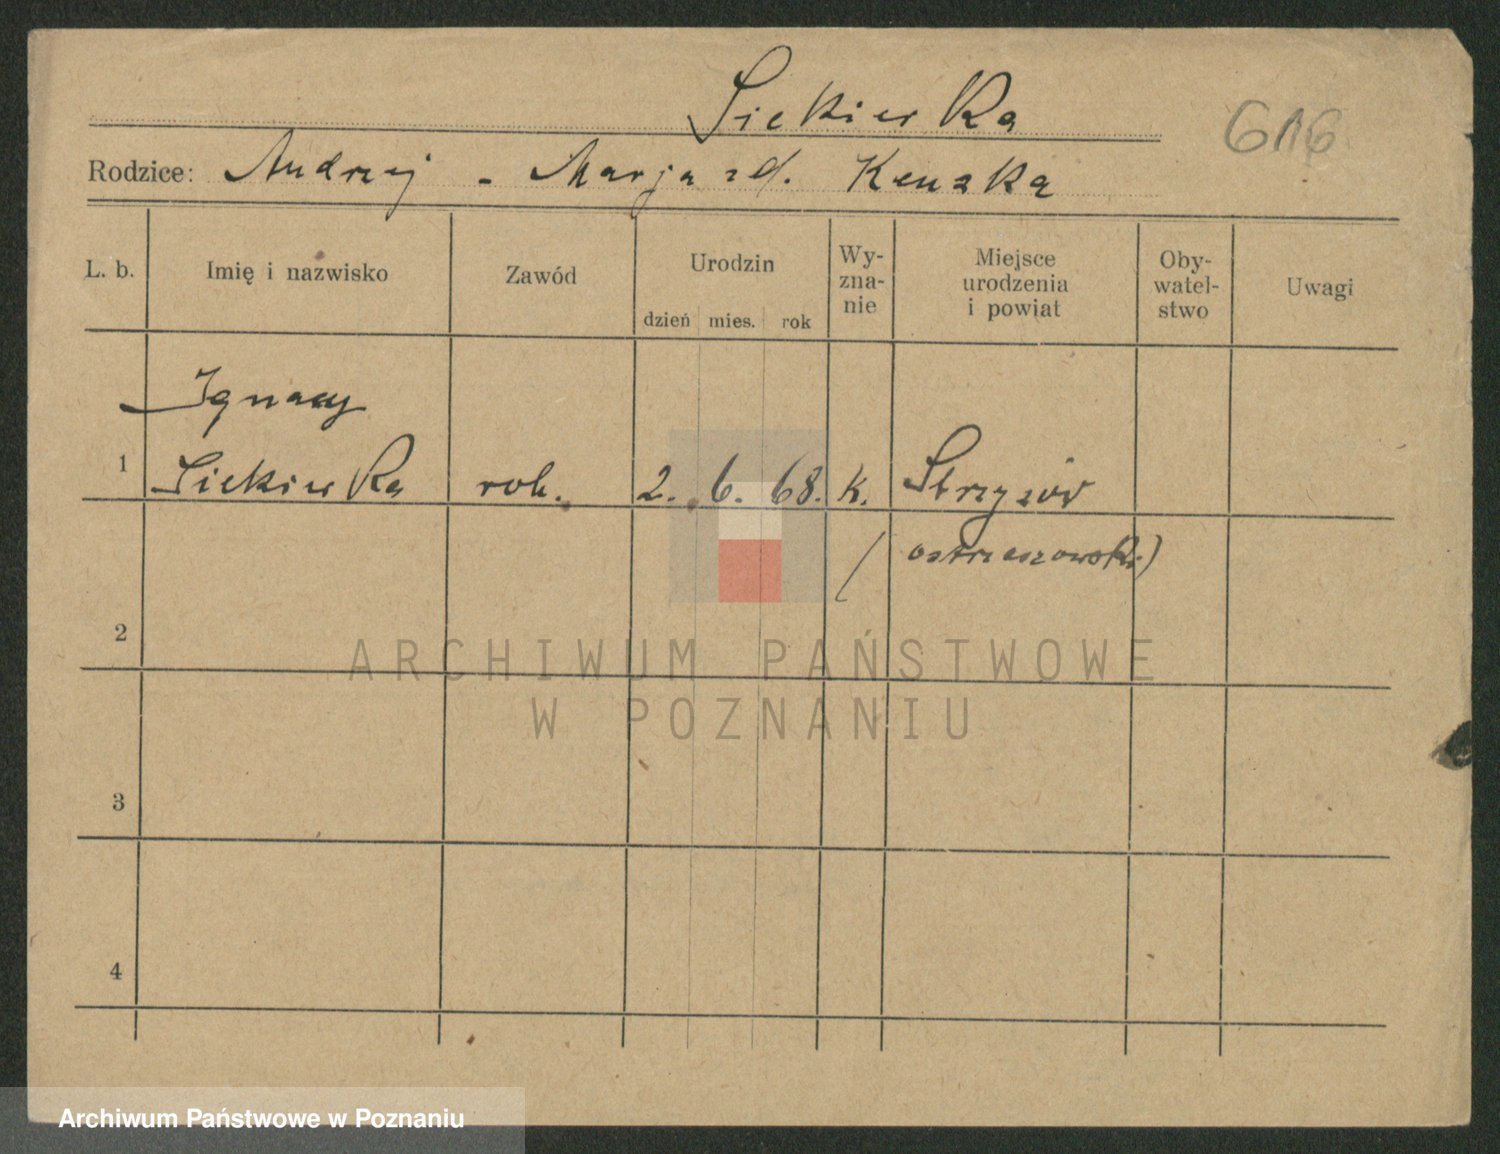 Siekierka
616
Rodzice: Andrzej - Marja zd. Kenzka
L. b.
Imię i nazwisko
Zawód
Urodzin
dzień mies. rok
Wy-
zna-
nie
Miejsce
urodzenia
i powiat
Oby-
watel-
stwo
Uwagi
Ignacy
1 Siekierka rob. 2. 6. 68. k. Strzyżów
(ostrzeszowski)
2
3
4
ARCHIWUM PAŃSTWOWE
W POZNANIU
Archiwum Państwowe w Poznaniu